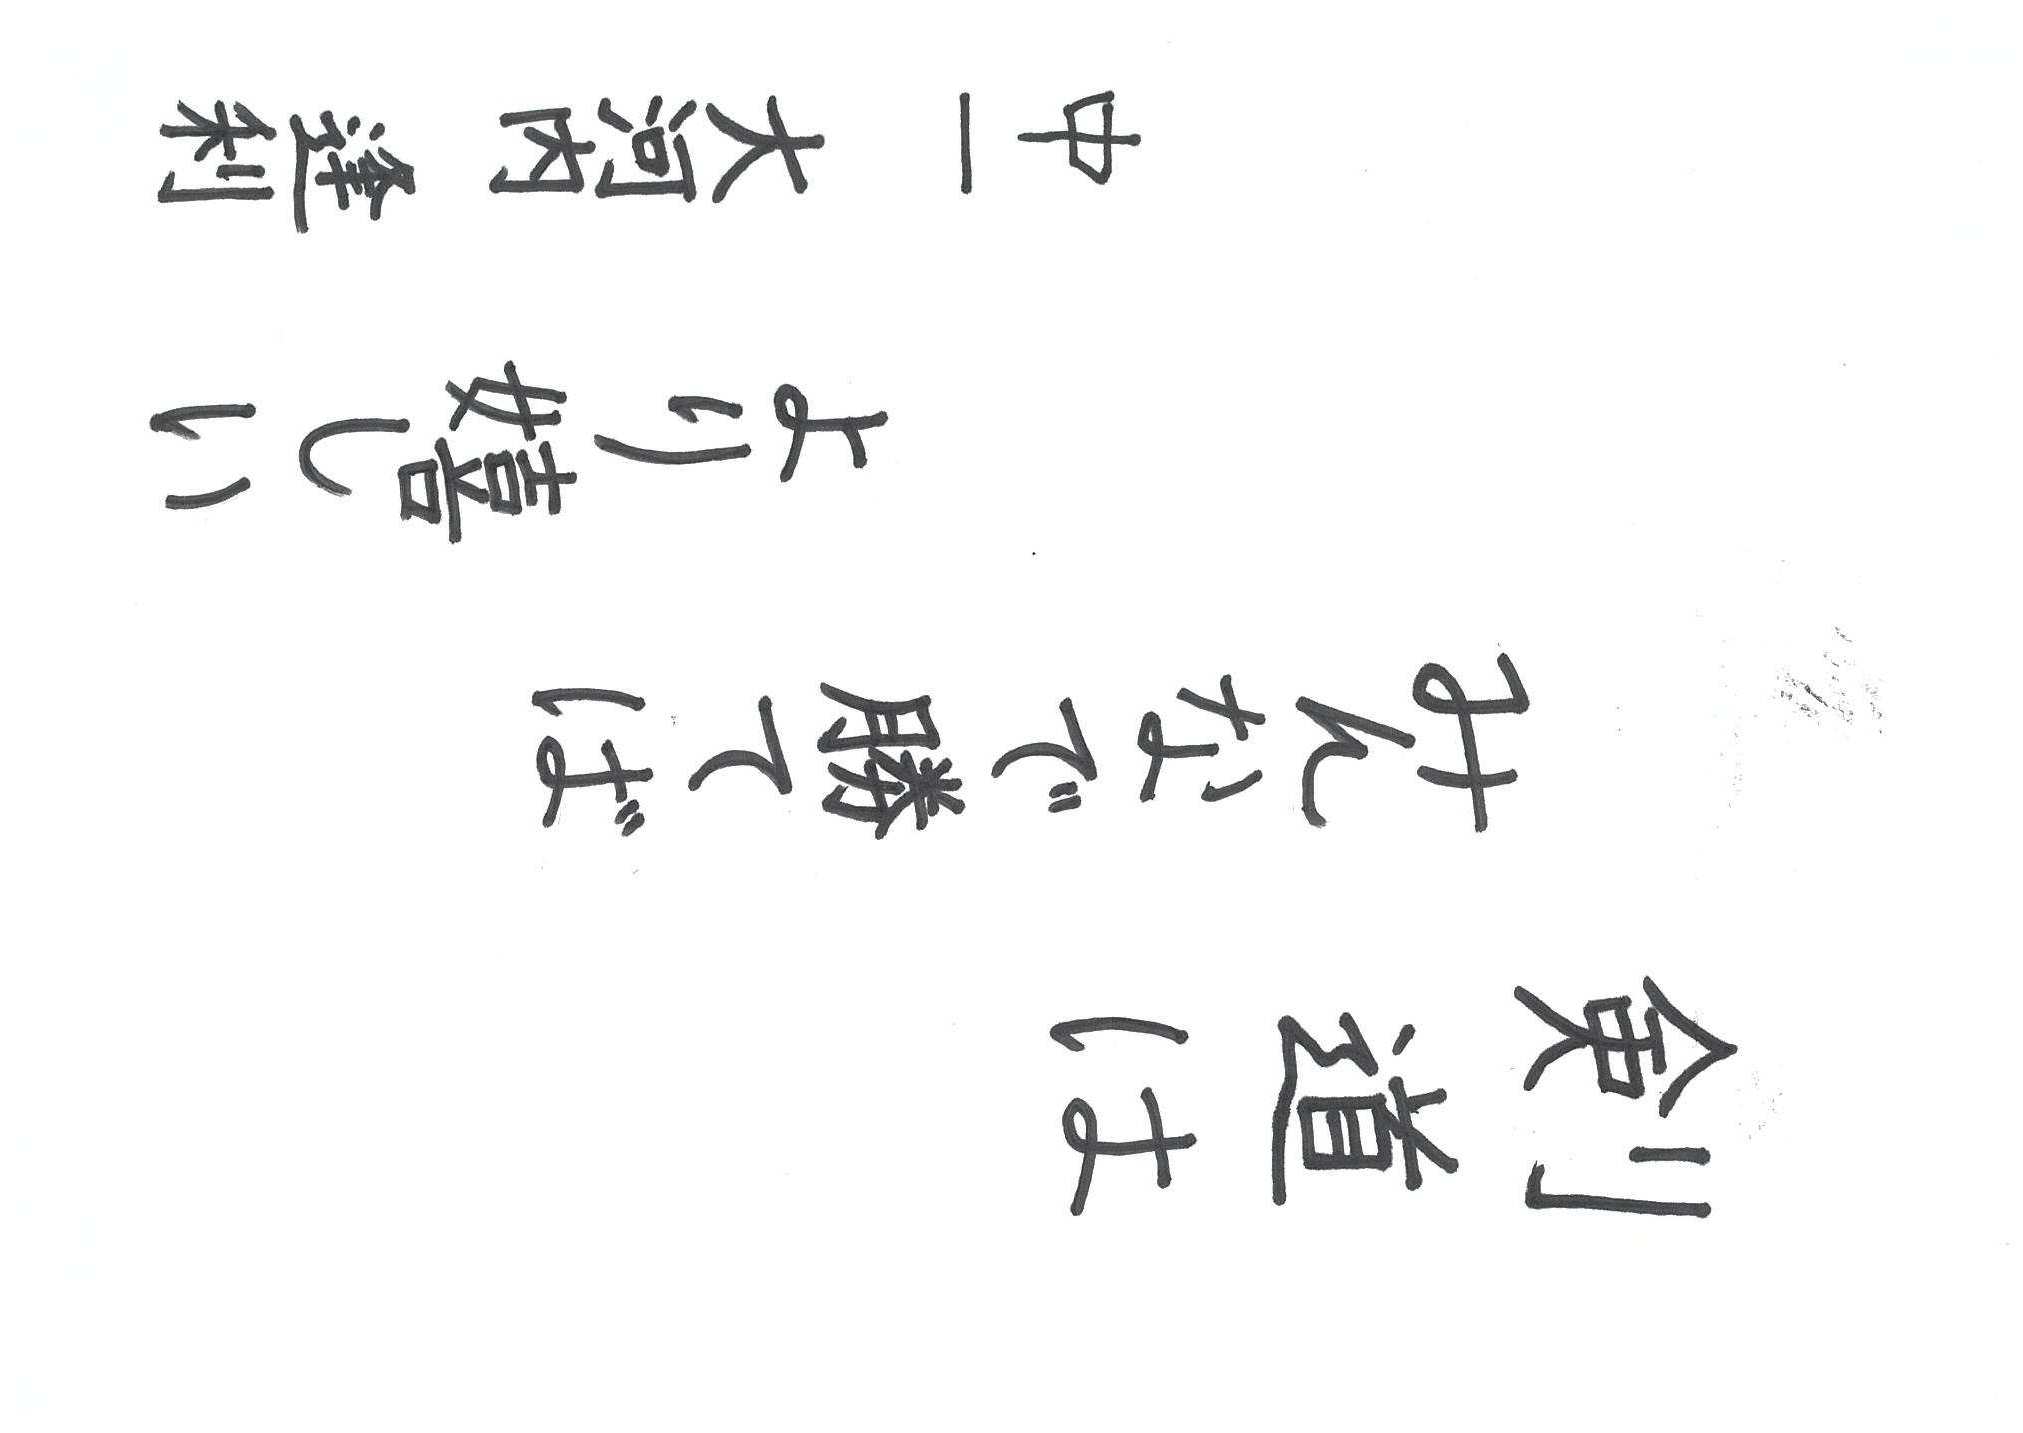 剣道は
みんなで勝てば
より嬉しい
中一 大河内 逢利